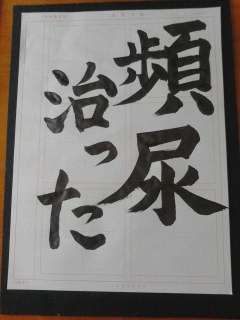 頻尿
治った